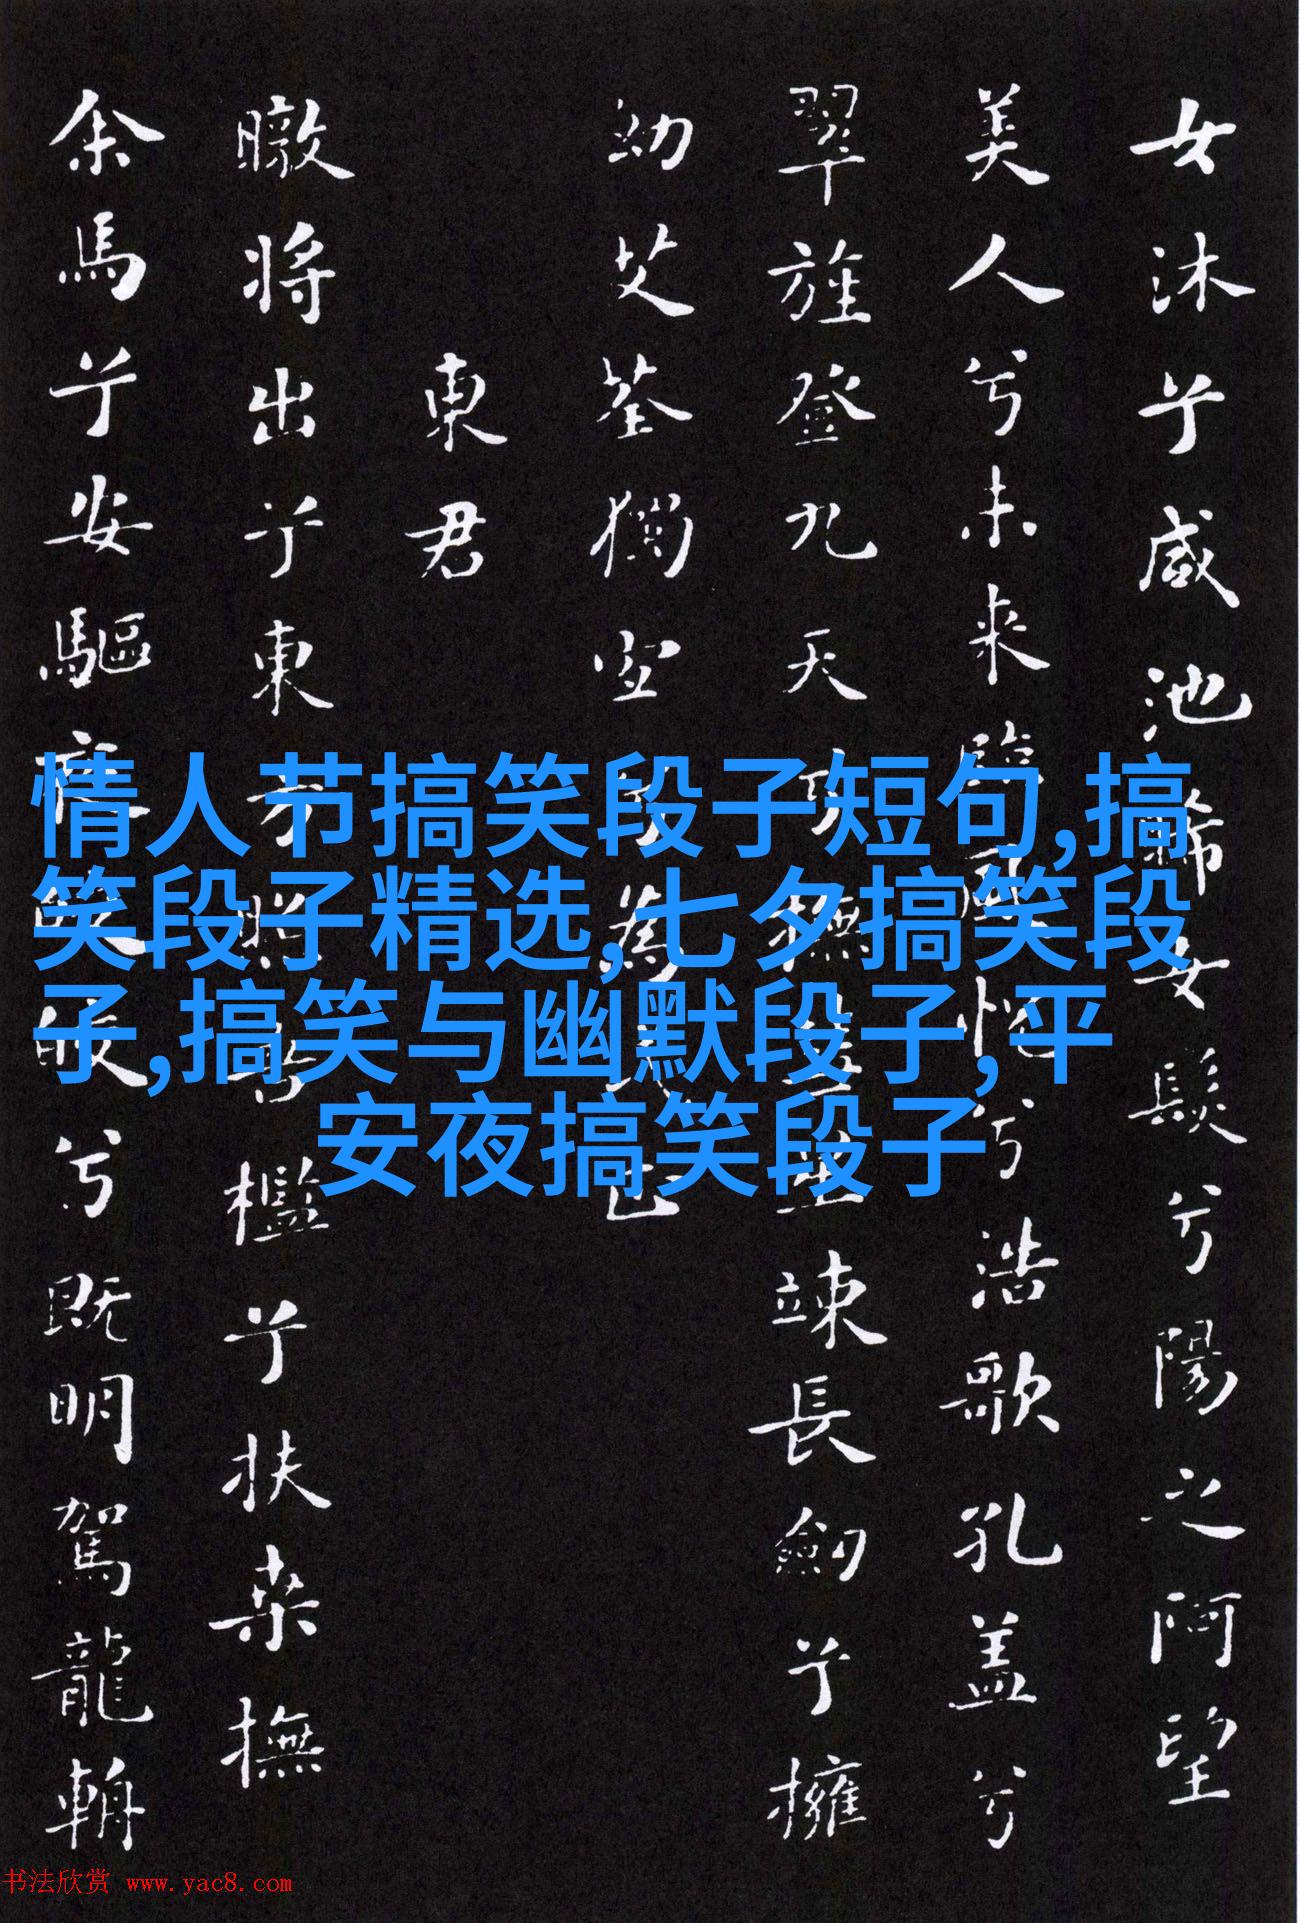 女沐兮咸池晞女髮兮陽之阿望
美人兮未来臨風怳兮浩歌孔盖兮
翠旍登九天兮撫彗星竦長劍兮擁
幼艾荃獨宜兮為民正
東君
暾将出兮東方照吾檻兮扶桑撫
余馬兮安驅夜皎皎兮既明駕龍輈
情人节搞笑段子短句,搞
笑段子精选,七夕搞笑段
子,搞笑与幽默段子,平
安夜搞笑段子
书法欣赏 www.yac8.com